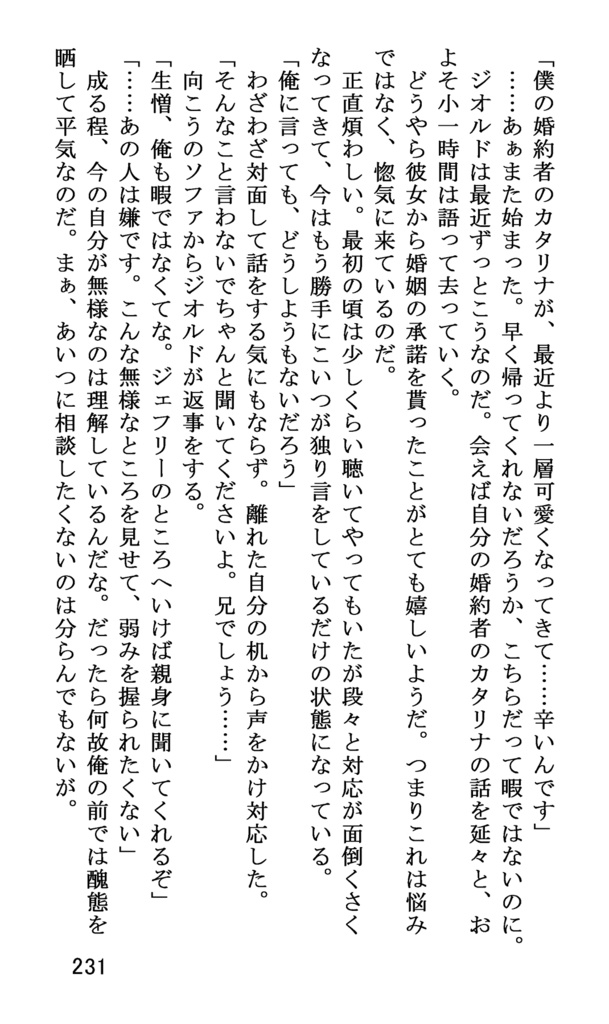 「僕の婚約者のカタリナが、最近より一層可愛くなってきて……辛いんです」
……あぁまた始まった。早く帰ってくれないだろうか、こちらだって暇ではないのに。
ジオルドは最近ずっとこうなのだ。会えば自分の婚約者のカタリナの話を延々と、お
よそ小一時間は語って去っていく。
どうやら彼女から婚姻の承諾を貰ったことがとても嬉しいようだ。つまりこれは悩み
ではなく、惚気に来ているのだ。
正直煩わしい。最初の頃は少しくらい聴いてやってもいたが段々と対応が面倒くさく
なってきて、今はもう勝手にこいつが独り言をしているだけの状態になっている。
「俺に言っても、どうしようもないだろう」
わざわざ対面して話をする気にもならず。離れた自分の机から声をかけ対応した。
「そんなこと言わないでちゃんと聞いてくださいよ。兄でしょう……」
向こうのソファからジオルドが返事をする。
「生憎、俺も暇ではなくてな。ジェフリーのところへいけば親身に聞いてくれるぞ」
「……あの人は嫌です。こんな無様なところを見せて、弱みを握られたくない」
成る程、今の自分が無様なのは理解しているんだな。だったら何故俺の前では醜態を
晒して平気なのだ。まぁ、あいつに相談したくないのは分らんでもないが。
231